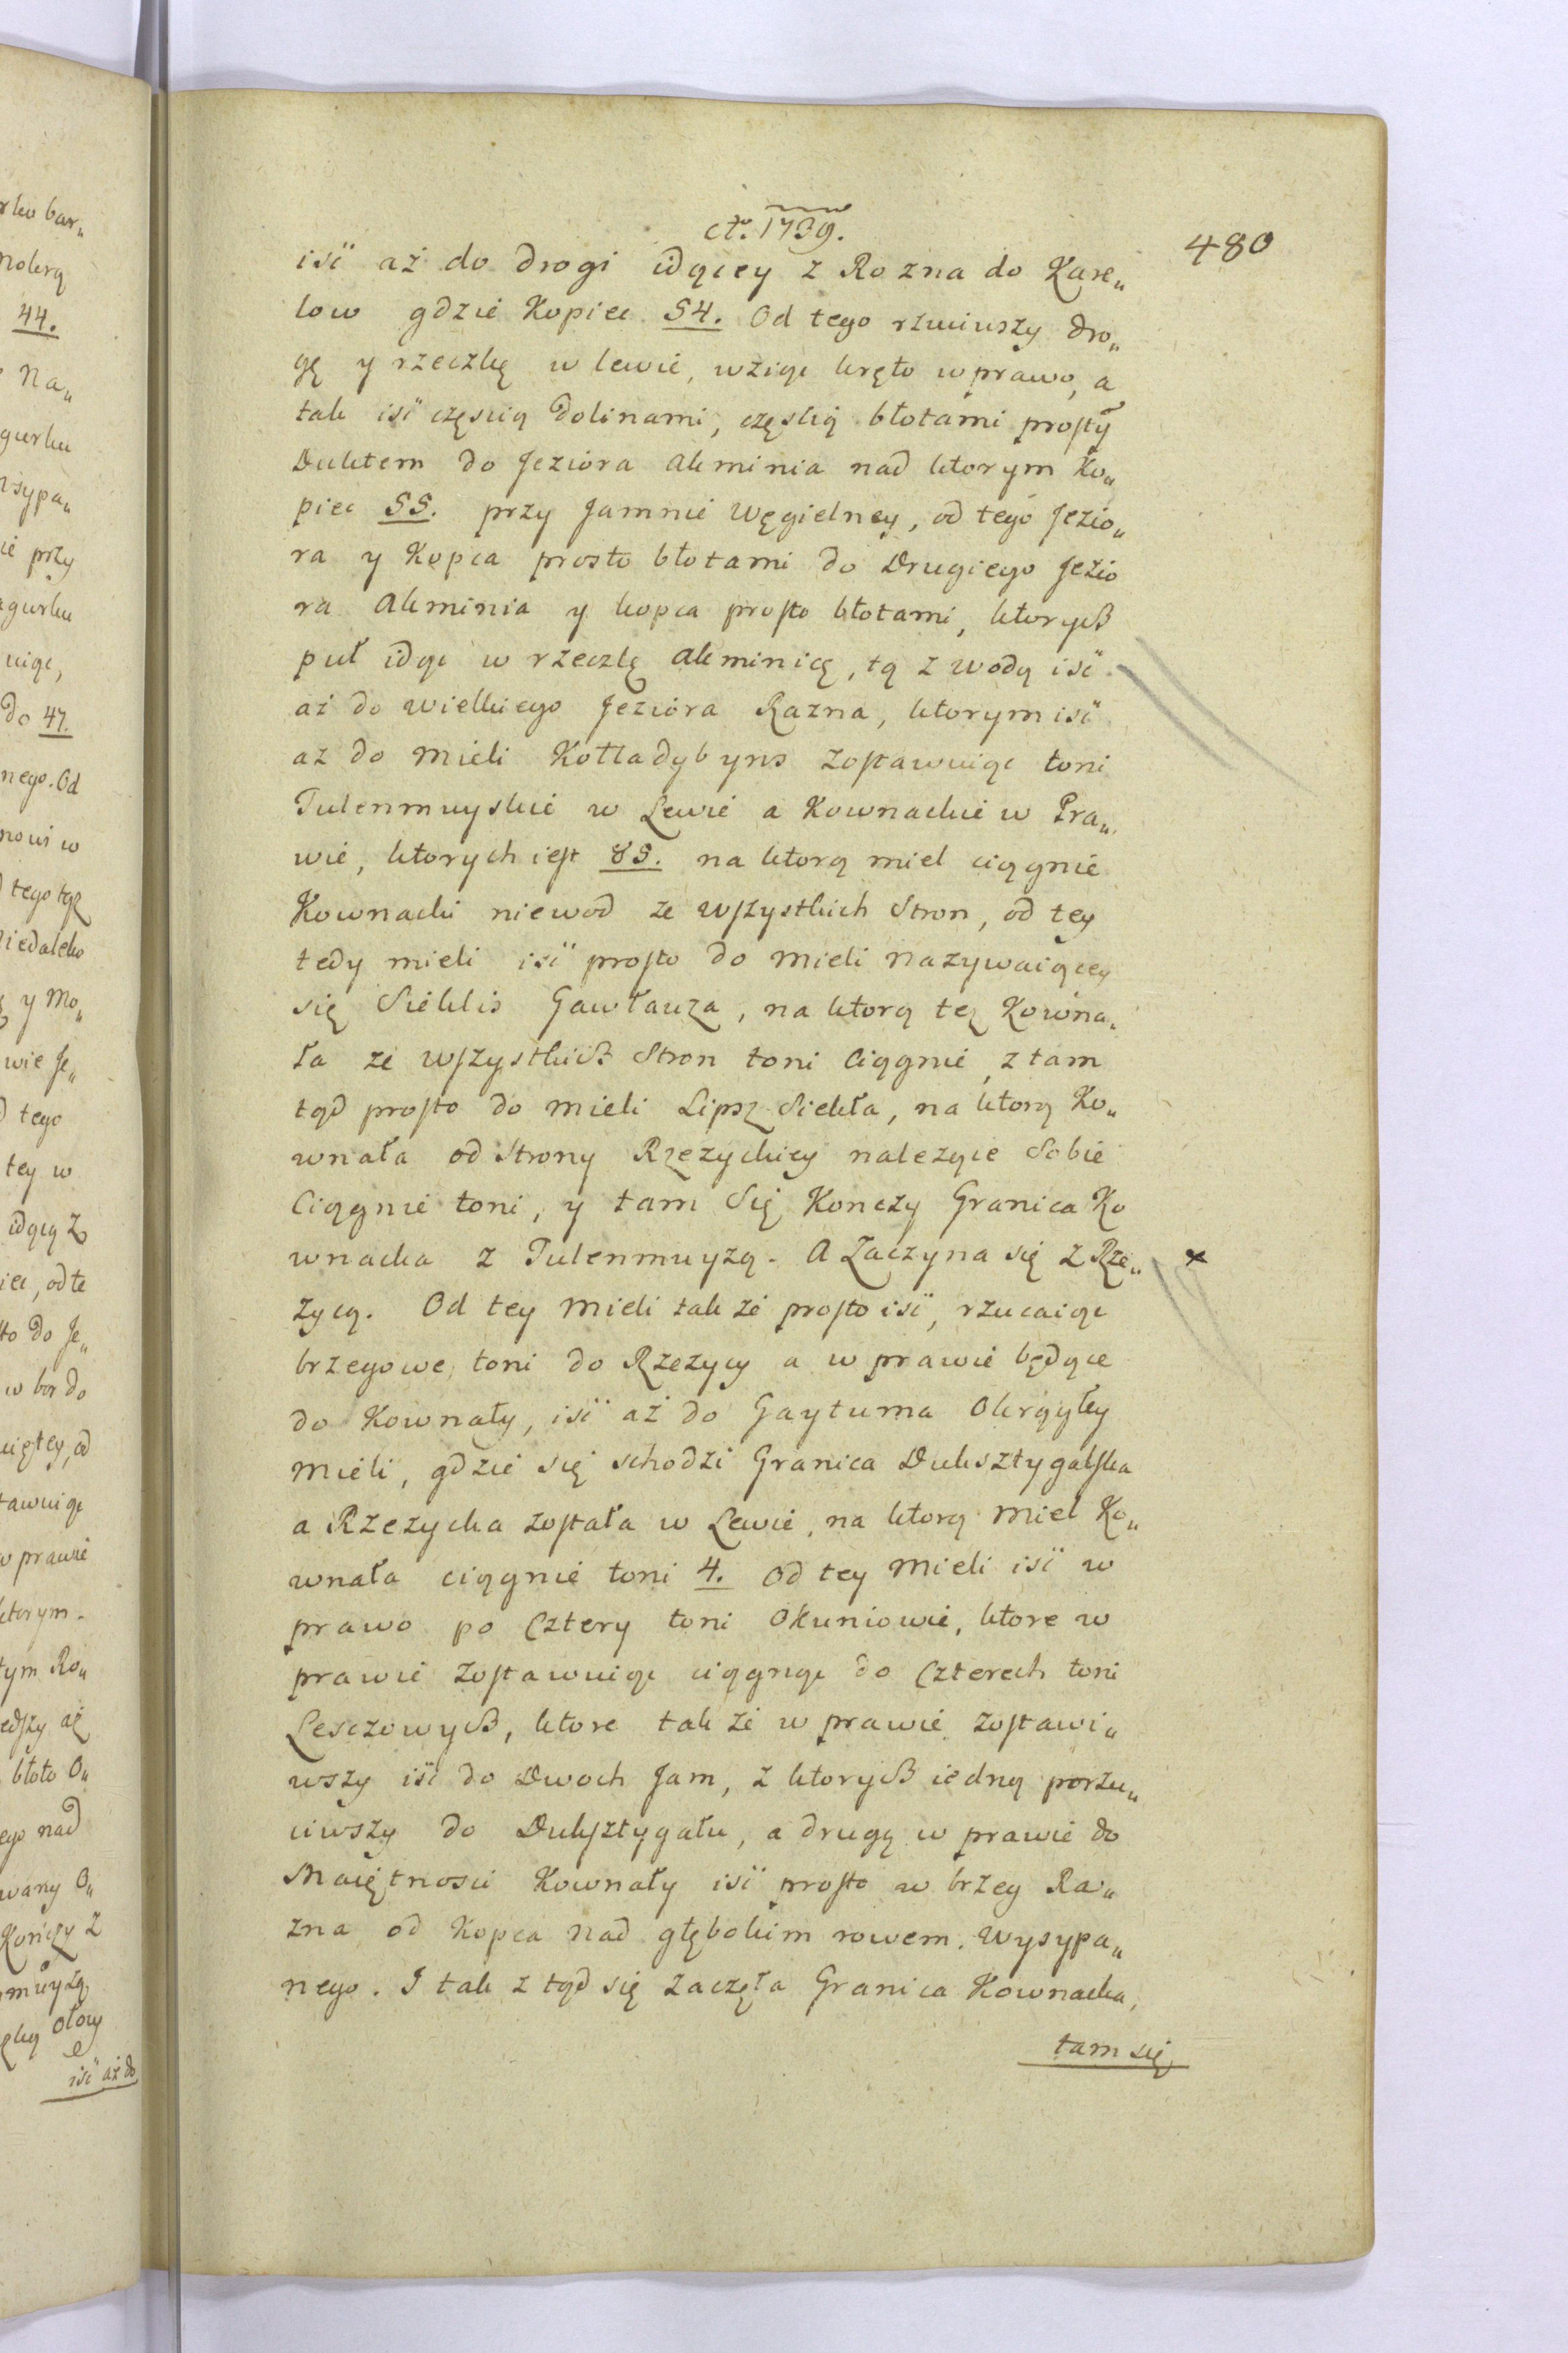 cto. 1739.
480
iść aż do drogi idącey z Rozna do Kare„
low gdzie Kopiec 54. Od tego rzuciwszy dro„
gę y rzeczkę w lewie, wziąć kręto w prawo, a
tak iść częscią dolinami, częscią błotami prosty
Duktem do Jeziora Akminia nad ktorym Ko„
piec 55. przy Jamnie Węgielney, od tego Jezio„
ra y Kopca prosto błotami do Drugiego Jezio
ra Akminia y kopca prosto błotami, ktorych
puł idąc w rzeczkę Akminicę, tą z wodą iść
aż do wielkiego Jeziora Razna, ktorym iść
aż do mieli Kotładybyns zostawuiąc toni
Tulenmuyskie w Lewie a Kownackie w Pra„
wie, ktorych iest 85. na ktorą miel ciągnie
Kownacki niewod ze wszystkich Stron, od tey
tedy mieli iść prosto do mieli nazywaiącey
się Sieklis Gawłauza, na ktorą tez Kowna„
ła ze wszystkich Stron toni ciągnie, z tam
tąd prosto do mieli Lipsz Siekła, na ktorą Ko„
wnała od Strony Rzezyckiey nalezące Sobie
Ciągnie toni, y tam Się Konczy Granica Ko
wnacka z Tulenmuyzą. A Zaczyna się z Rze„ x
zycą. Od tey Mieli tak że prosto iść, rzucaiąc
brzegowe toni do Rzezycy a w prawie będące
do Kownały, iść aż do Gaytuma Okrągłey
Mieli, gdzie się schodzi Granica Duksztygalska
a Rzezycka została w Lewie, na ktorą Miel Ko„
wnała ciągnie toni 4. Od tey Mieli iść w
prawo po Cztery toni Okuniowie, ktore w
prawie zostawuiąc ciągnąc do Czterech toni
Lesczowych, ktore tak że w prawie zostawi„
wszy iść do Dwoch Jam, z ktorych iedną porzu„
ciwszy do Duksztygału, a drugą w prawie do
Maiętnosci Kownały iść prosto w brzeg Ra„
zna od Kopca nad głębokim rowem wysypa„
nego. I tak z tąd się zaczęła Granica Kownacka,
tam się
rko bar„
44.
Na„
gurku
wsypa„
ie przy
agurku
do 47.
nego. Od
tego tęz
niedaleko
y Mo„
wie Je„
tego
tey w
idącą z
iec, od te
sto do Je„
w bor do
tawuiąc
w prawie
ktorym
tym Ro„
edszy aż
błoto O„
ego nad
wany O„
Kończy z
muyzą
iść aż do